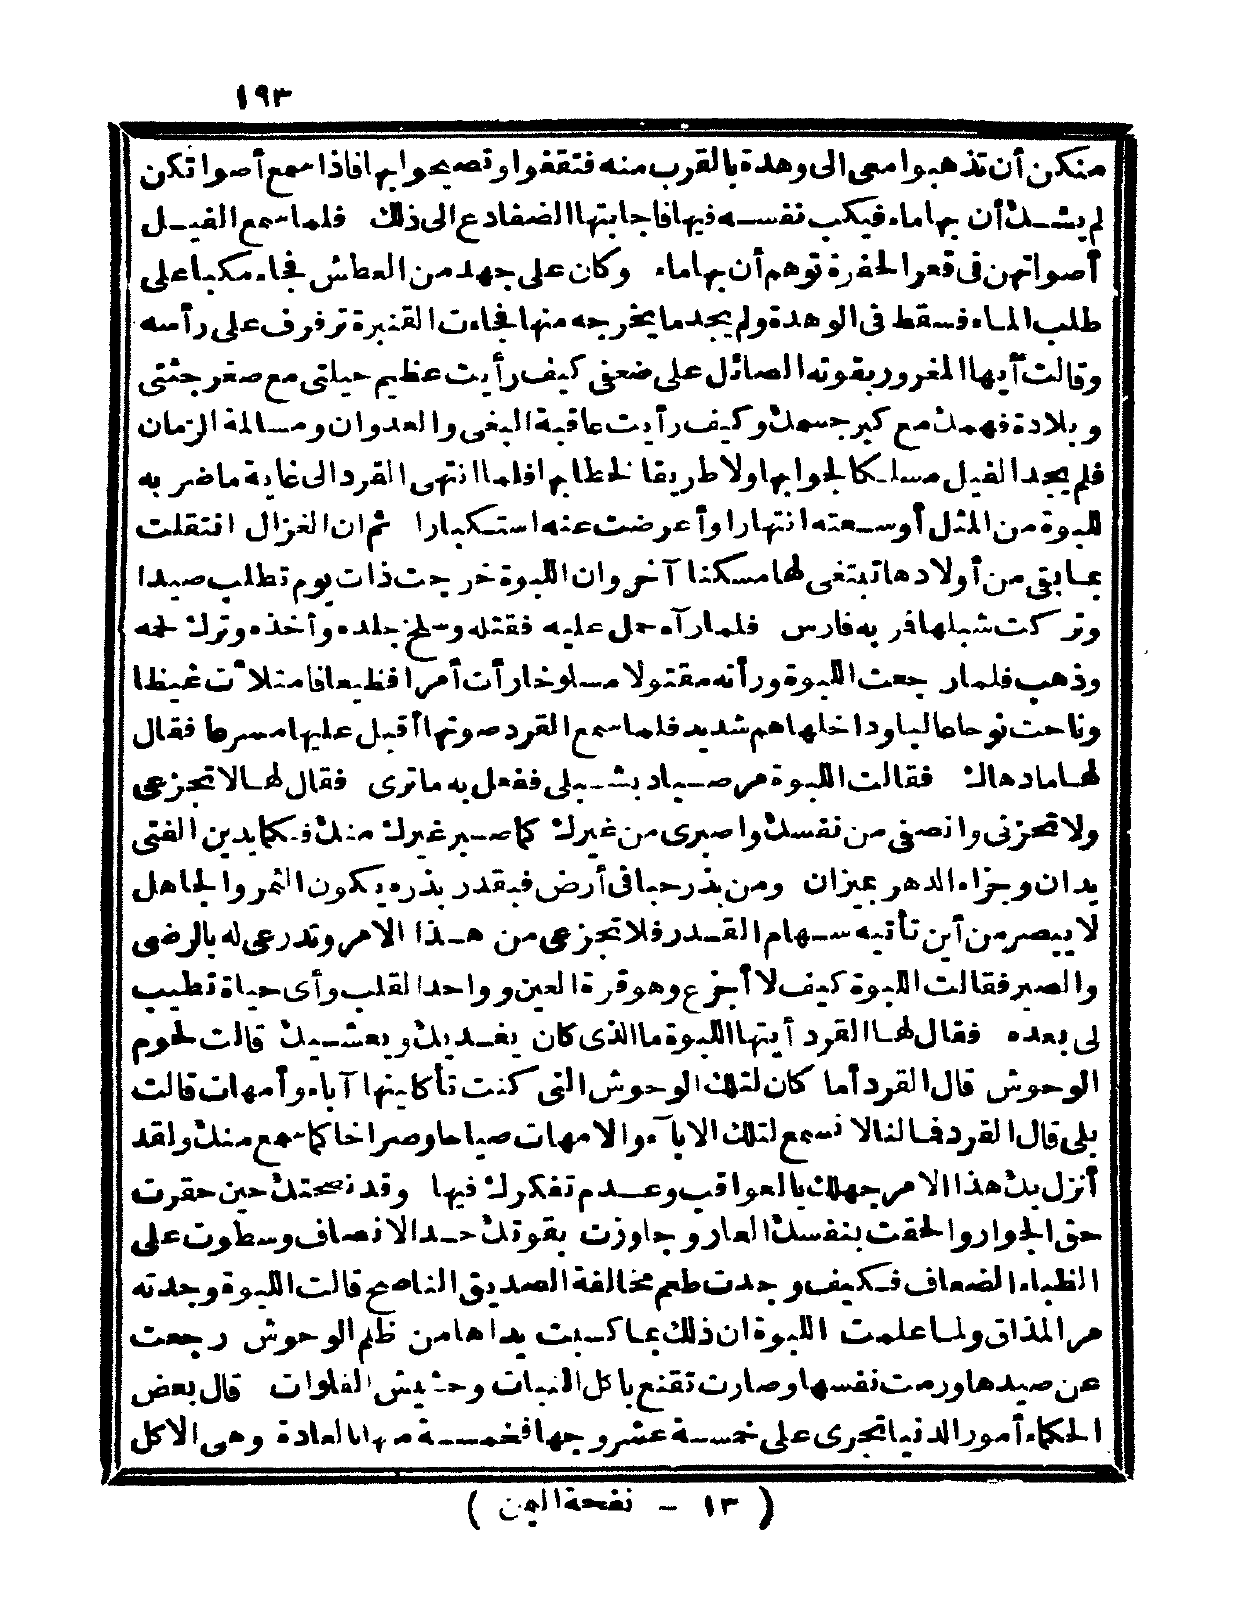 ١٩٣
منكن أن تذهبوا معى الى وهدة بالقرب منه فتقفوا وتصيحوا بها فاذا سمع أصواتكن
لم يشك أن بها ماء فيكب نفسه فيها فاجابتها الضفادع الى ذلك فلما سمع الفيل
أصواتهن فى قعر الحفرة توهم أن بها ماء وكان على جهد من العطاش فجاء مكبا على
طلب الماء فسقط فى الوهدة ولم يجد ما يخرجه منها فجاءت القنبرة ترفرف على رأسه
وقالت أيها المغرور بقوته الصائل على ضعفى كيف رأيت عظيم حيلتى مع صغر جثتى
وبلادة فهمك مع كبر جسمك وكيف رأيت عاقبة البغى والعدوان ومسالمة الزمان
فلم يجد الفيل مسلكا لجوابها ولا طريقا لخطابها فلما انتهى القرد الى غاية ما ضربه
للبوة من المثل أوسعته انتهارا وأعرضت عنه استكبارا ثم ان الغزال انتقلت
بما بقى من أولادها تبتغى لها مسكنا آخر وان اللبوة خرجت ذات يوم تطلب صيدا
وتركت شبلها فر به فارس فلما رآه حمل عليه فقتله وسلخ جلده وأخذه وترك لحمه
وذهب فلما رجعت اللبوة ورأته مقتولا مسلوخا رأت أمرا فظيعا فامتلأت غيظا
وناحت نوحا عاليا وداخلها هم شديد فلما سمع القرد صوتها أقبل عليها مسرعا فقال
لها ما دهاك فقالت اللبوة مر صياد بشبلى ففعل به ما ترى فقال لها لا تجزعى
ولا تحزنى وانصفى من نفسك واصبرى من غيرك كما صبر غيرك منك فكما يدين الفتى
يدان وجزاء الدهر بميزان ومن بذر حبا فى أرض فبقدر بذره يكون الثمر والجاهل
لا يبصر من أين تأتيه سهام القدر فلا تجزعى من هذا الامر وتدرعى له بالرضى
والصبر فقالت اللبوة كيف لا أجزع وهو قرة العين وواحد القلب وأى حياة تطيب
لى بعده فقال لها القرد أيتها اللبوة ما الذى كان يغديك ويعشيك قالت لحوم
الوحوش قال القرد أما كان لتلك الوحوش التى كنت تأكلينها آباء وأمهات قالت
بلى قال القرد فما لنا لا نسمع لتلك الآباء والامهات صياحا وصراخا كما سمع منك ولقد
أنزل بك هذا الامر جهلك بالعواقب وعدم تفكرك فيها وقد نصحتك حين حقرت
حق الجوار وألحقت بنفسك العار وجاوزت بقوتك حد الانصاف وسطوت على
الظباء الضعاف فكيف وجدت طعم مخالفة الصديق الناصح قالت اللبوة وجدته
مر المذاق ولما علمت اللبوة ان ذلك بما كسبت يداها من ظلم الوحوش رجعت
عن صيدها ورمت نفسها وصارت تقنع باكل النبات وحشيش الفلوات قال بعض
الحكماء أمور الدنيا تجرى على خمسة عشر وجها فخمسة منها بالعادة وهى الاكل
( ١٣ - نفحة اليمن )